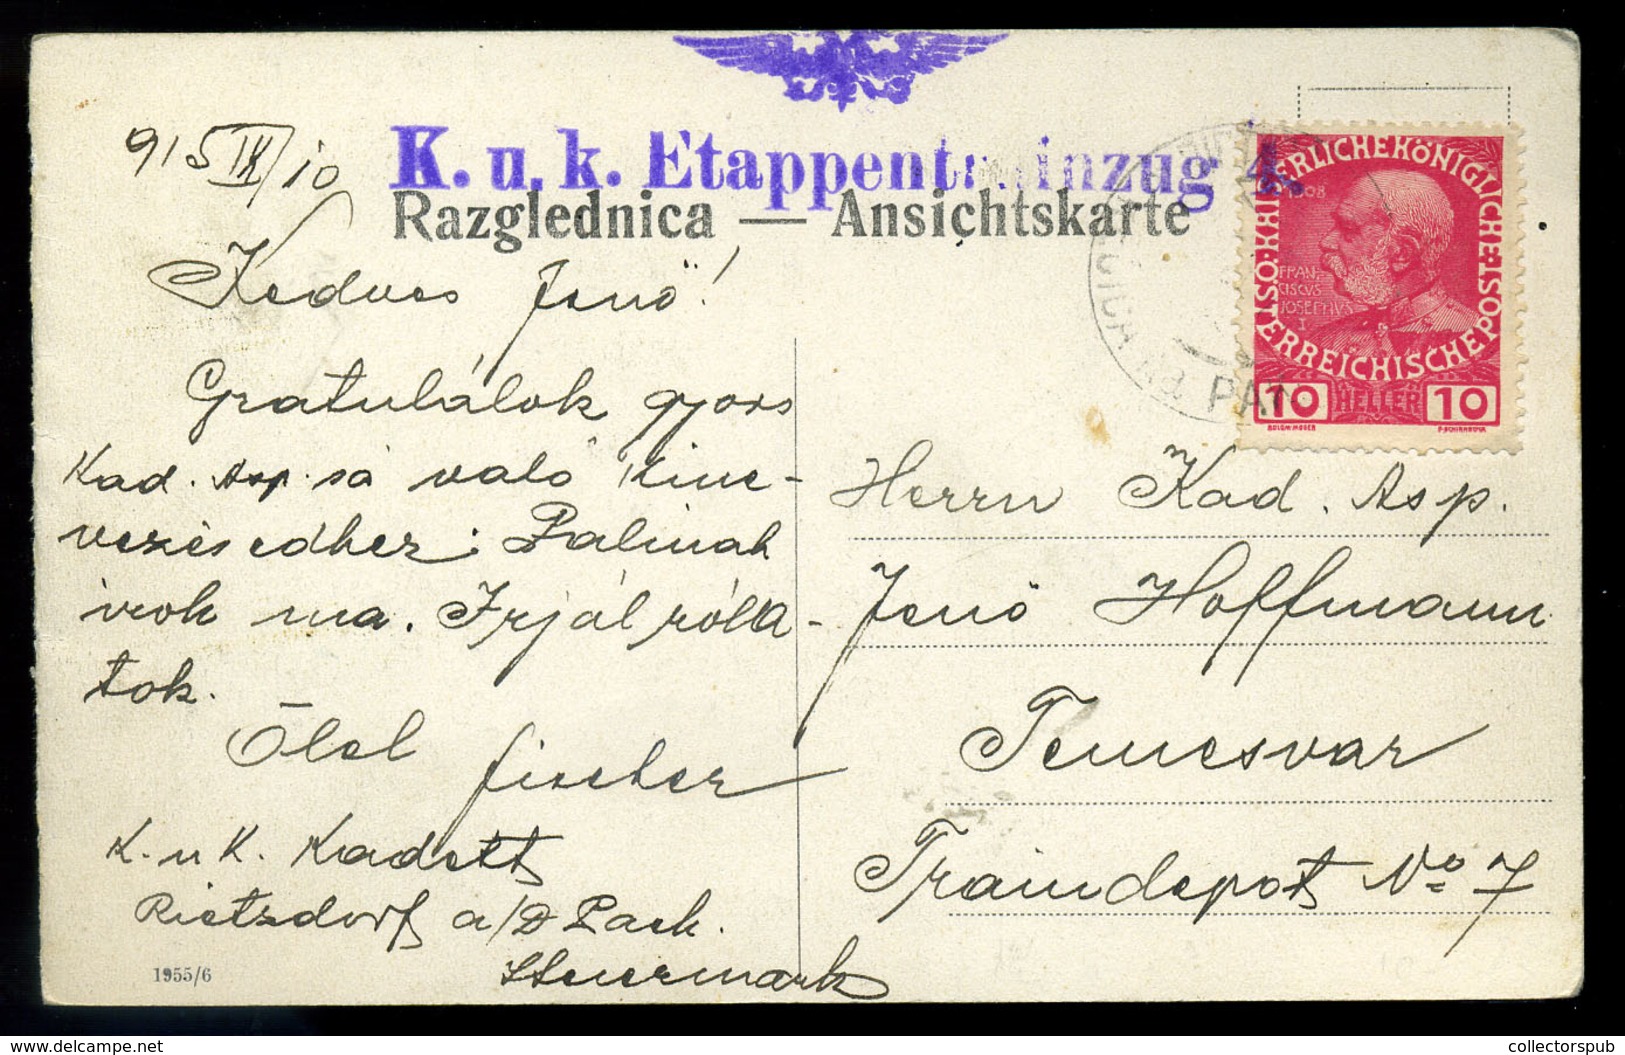 915 IX/10
K. u. k. Etappentrainzug 4
Razglednica — Ansichtskarte
Kedves Jenő!
Gratulálok gyors
Kad. Asp. sá való kine-
vezésedhez. Palinak
irok ma. Irjál róla-
tok.
Ölel fischer
K. u K. Kadett
Rietzdorf a/D Pack.
Steiermark
1955/6
KAISERLICHE KÖNIGLICHE
ÖSTERREICHISCHE POST
1908
FRAN-
CISCVS
JOSEPHVS
I
10 HELLER 10
PAT
Herrn Kad. Asp.
Jenő Hoffmann
Temesvar
Traindepot No 7
delcampe.net
collectorspub